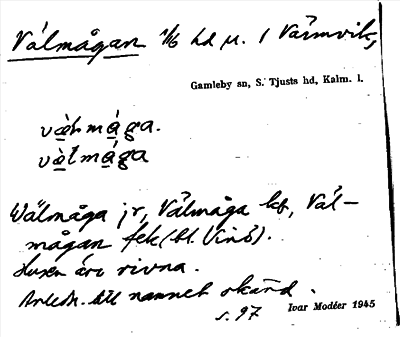 Välmågan 1/16 hd µ. / Värmvik,
Gamleby sn, S. Tjusts hd, Kalm. l.
væ̀lmá̱ga.
væ̀lmá̱ga
Wälmåga jr, Välmåga kf, Väl-
mågan fek (bl. Vinö).
Husen äro rivna.
Anledn. till namnet okänd.
s. 97
Ivar Modéer 1945